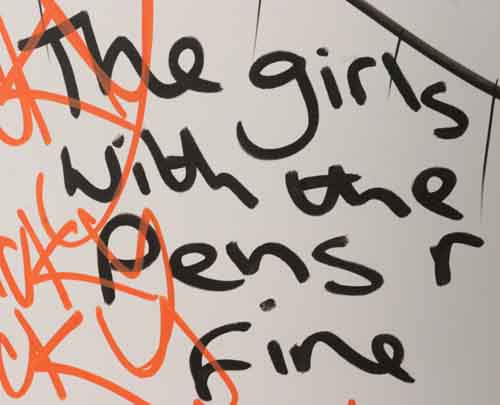 The girls
with the
Pens r
Fine